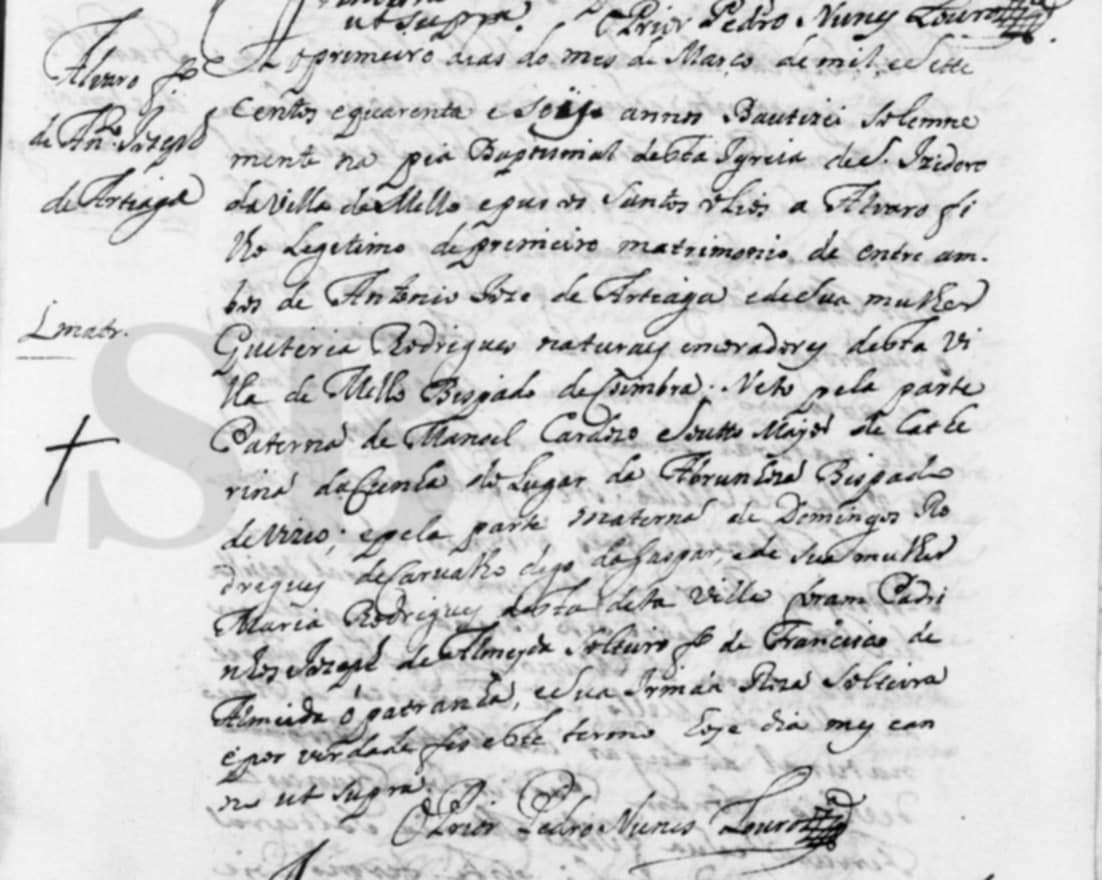 ut supra. O Prior Pedro Nunes Louro
Alvaro fº
de Anº Jozeph
de Artiaga
1 matr.
Ao primeiro dias do mes de Março de mil e sette
centos e quarenta e annos Bautizei solemne
mente na pia Baptismal desta Igreia de S. Izidoro
da Villa de Mello e pus os Santos olios a Alvaro fi
lho legitimo de primeiro matrimonio de entre am-
bos de Antonio Joze de Artiaga e de sua mulher
Guiteria Rodrigues naturaes e moradores desta Vi
lla de Mello Bispado de Coimbra. Neto pela parte
Paterna de Manoel Cardozo de Cathe
rina da Cunha do Lugar da Abrunhoza Bispado
de Vizeo; e pela parte materna de Domingos Ro
drigues de Carvalho digo da Gaspar, e de sua mulher
Maria Rodrigues desta Villa foram Padri
nhos Jozeph de Almeyda solteiro fº de Francisco de
Almeida o patranha, e sua Irmãa Roza solteira
e por verdade fis este termo hoje dia mes e an
no ut supra
O Prior Pedro Nunes Louro
LSB